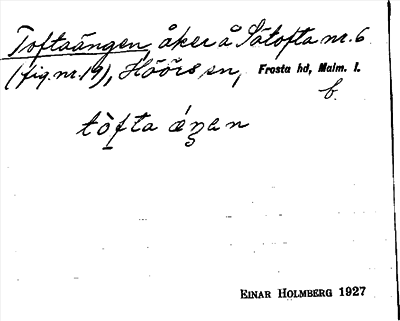 Toftaängen, åker å Sätofta nr. 6
(fig. nr. 19), Höörs sn, Frosta hd, Malm. l.
b.
tòfta ä́ŋen
EINAR HOLMBERG 1927